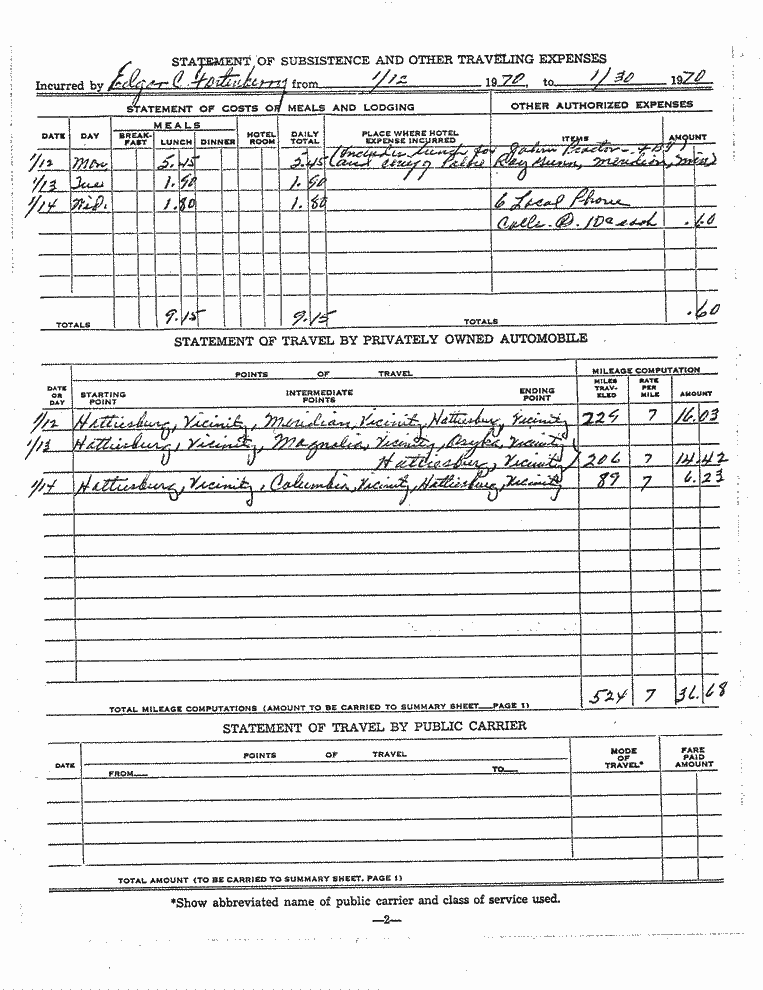 STATEMENT OF SUBSISTENCE AND OTHER TRAVELING EXPENSES
Incurred by Edgar C. Fortenberry from 1/12 1970, to 1/30 1970
STATEMENT OF COSTS OF MEALS AND LODGING OTHER AUTHORIZED EXPENSES
DATE DAY MEALS BREAK-FAST LUNCH DINNER HOTEL ROOM DAILY TOTAL PLACE WHERE HOTEL EXPENSE INCURRED ITEMS AMOUNT
1/12 Mon 5.45 5.45 (Includes lunch for John Proctor - FBI
and Police Ray Gunn, Meridian, Miss)
1/13 Tues 1.90 1.90
1/14 Wed. 1.80 1.80 6 Local Phone
Calls @ .10¢ each .60
TOTALS 9.15 9.15 TOTALS .60
STATEMENT OF TRAVEL BY PRIVATELY OWNED AUTOMOBILE
DATE OR DAY POINTS OF TRAVEL MILEAGE COMPUTATION
STARTING POINT INTERMEDIATE POINTS ENDING POINT MILES TRAV-ELED RATE PER MILE AMOUNT
1/12 Hattiesburg, Vicinity, Meridian, Vicinity, Hattiesburg, Vicinity 229 7 16.03
1/13 Hattiesburg, Vicinity, Magnolia, Vicinity, Osyka, Vicinity,
Hattiesburg, Vicinity 206 7 14.42
1/14 Hattiesburg, Vicinity, Columbia, Vicinity, Hattiesburg, Vicinity 89 7 6.23
TOTAL MILEAGE COMPUTATIONS (AMOUNT TO BE CARRIED TO SUMMARY SHEET—PAGE 1) 524 7 36.68
STATEMENT OF TRAVEL BY PUBLIC CARRIER
DATE POINTS OF TRAVEL MODE OF TRAVEL* FARE PAID AMOUNT
FROM— TO—
TOTAL AMOUNT (TO BE CARRIED TO SUMMARY SHEET, PAGE 1)
*Show abbreviated name of public carrier and class of service used.
—2—